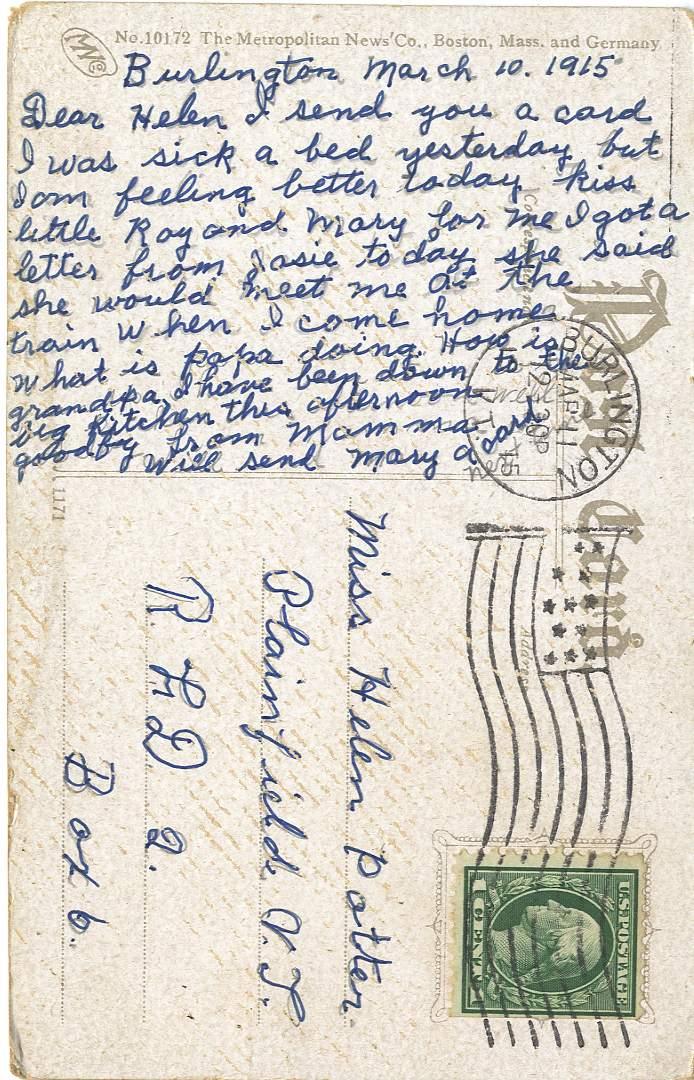 No.10172 The Metropolitan News Co., Boston, Mass. and Germany
Burlington March 10. 1915
Dear Helen I send you a card
I was sick a bed yesterday but
I am feeling better today Kiss
little Ray and Mary for me I got a
letter from Josie today she said
she would meet me at the
train when I come home
What is papa doing. How is
grandpa, I have been down to the
big kitchen this afternoon
goodby from Mamma
Will send Mary a card
Post Card
Address
BURLINGTON
MAR 11
12-30P
VT.
1171
Miss Helen Potter.
Plainfield V.T.
R. F. D 2.
Box 6.
U.S. POSTAGE
1 CENT 1